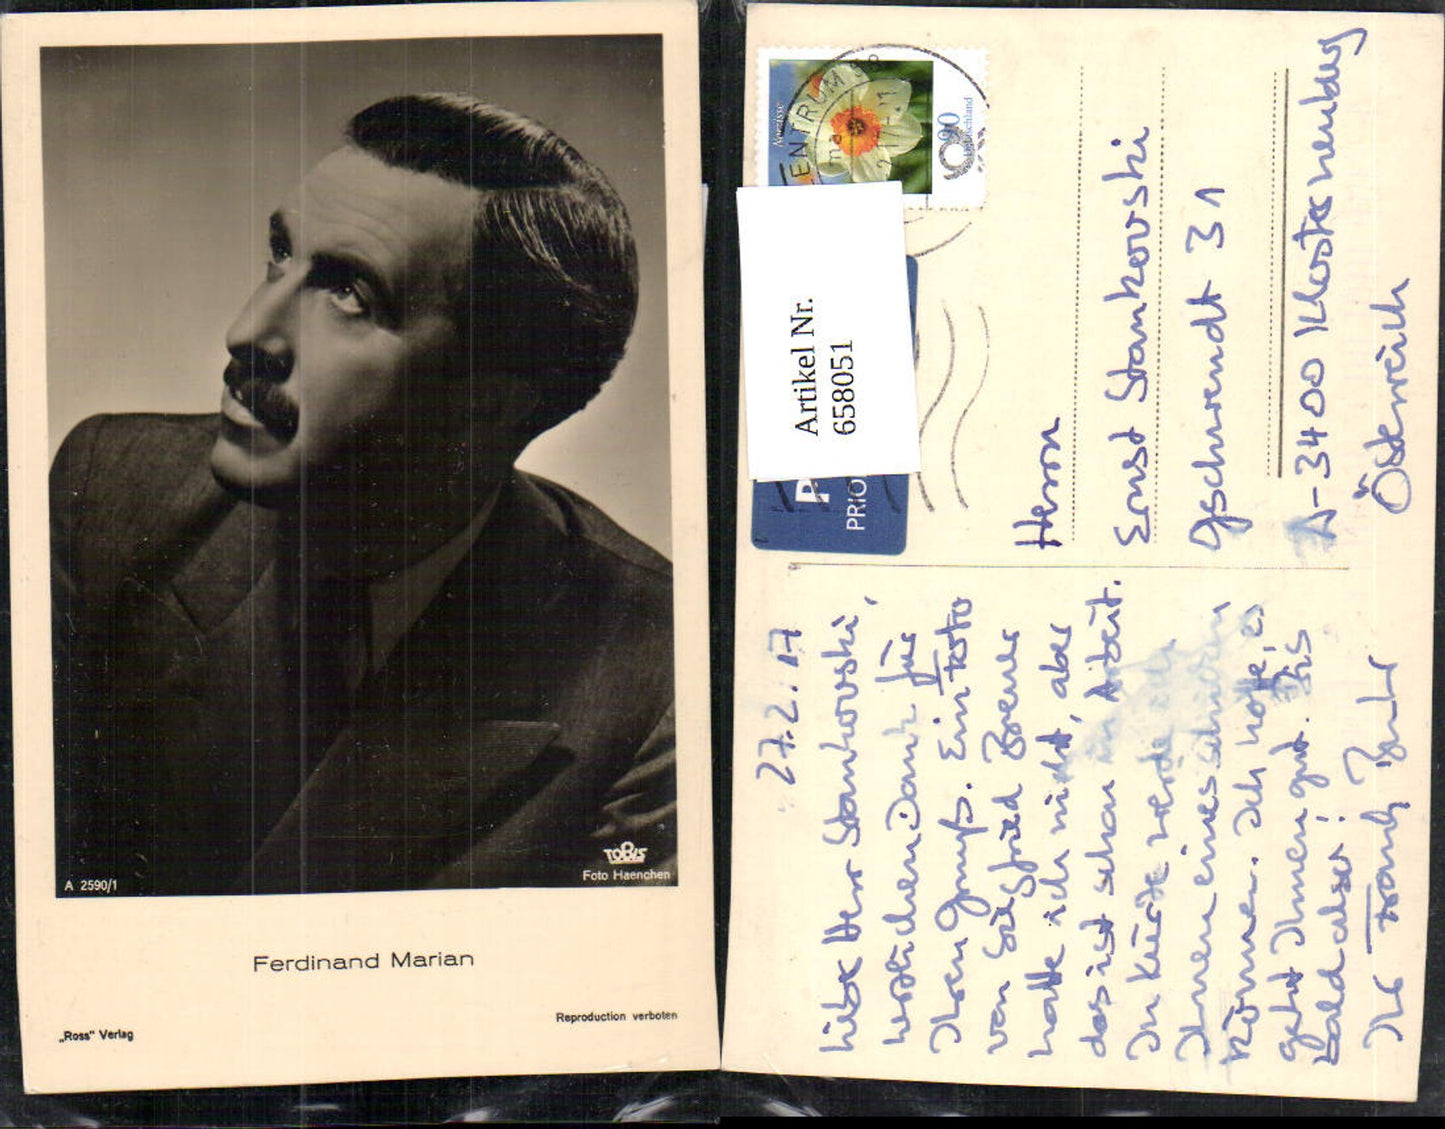 TOBIS
Foto Haenchen
A 2590/1
Ferdinand Marian
Reproduction verboten
„Ross" Verlag
Narzisse
90
Deutschland
ENTRUM
Artikel Nr.
658051
P
PRIO
Herrn
Ernst Stankovski
Gschwendt 31
A-3400 Klosterneuburg
Österreich
27.2.17
Lieber Herr Stankovski,
herzlichen Dank für
Ihren Gruß. Ein Foto
von Siegfried Breuer
hatte ich nicht, aber
das ist schon in Arbeit.
In Kürze werde ich
Ihnen eines schicken
können. Ich hoffe, es
geht Ihnen gut. Bis
bald aber!
Ihr Frank